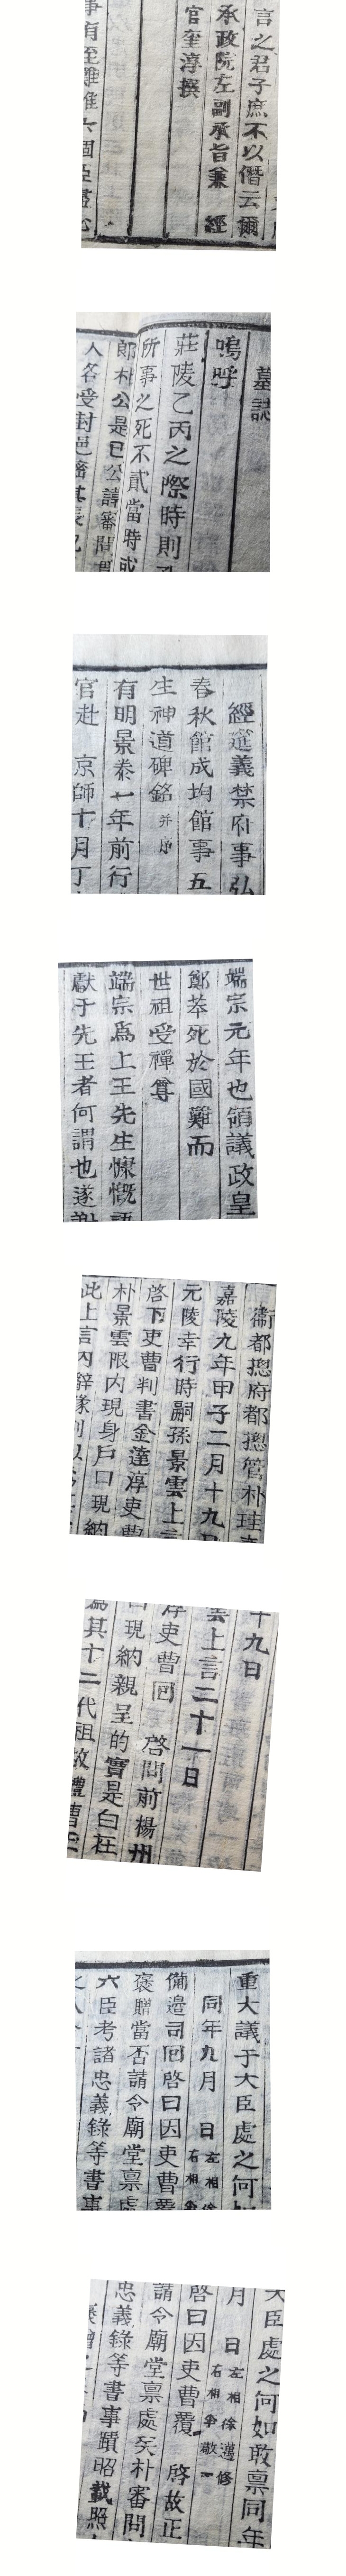 言之君子庶不以僭云爾
承政院左副承旨兼 經
官奎淳撰
事有至難惟六個臣
墓誌
嗚呼
莊陵乙丙之際時則
所事之死不貳當時或
郎朴公是已公諱審問
人名受封邑
經筵義禁府事弘
春秋館成均館事五
生神道碑銘 并序
有明景泰七年前行
官赴 京師十月丁
端宗元年也領議政皇
鄭苯死於國難而
世祖受禪尊
端宗爲上王先生慷慨
獻于先王者何謂也遂謝
衛都摠府都摠管朴珪
嘉陵九年甲子二月十九日
元陵幸行時嗣孫景雲上言
啓下吏曹判書金達淳吏曹
朴景雲限内現身戶口現納
此上言內辭緣
十九日
雲上言二十一日
淳吏曹回 啓問前楊州
口現納親呈的實是白在
爲其十二代祖故禮曹正
重大議于大臣處之何如
同年九月 日 左相徐
右相
備邊司回啓曰因吏曹覆
褒贈當否請令廟堂稟處
六臣考諸忠義錄等書事
大臣處之何如敢稟同年
月 日 左相徐邁修
右相 敬一
啓曰因吏曹覆 啓故正
請令廟堂稟處矣朴審問
忠義錄等書事蹟昭載照